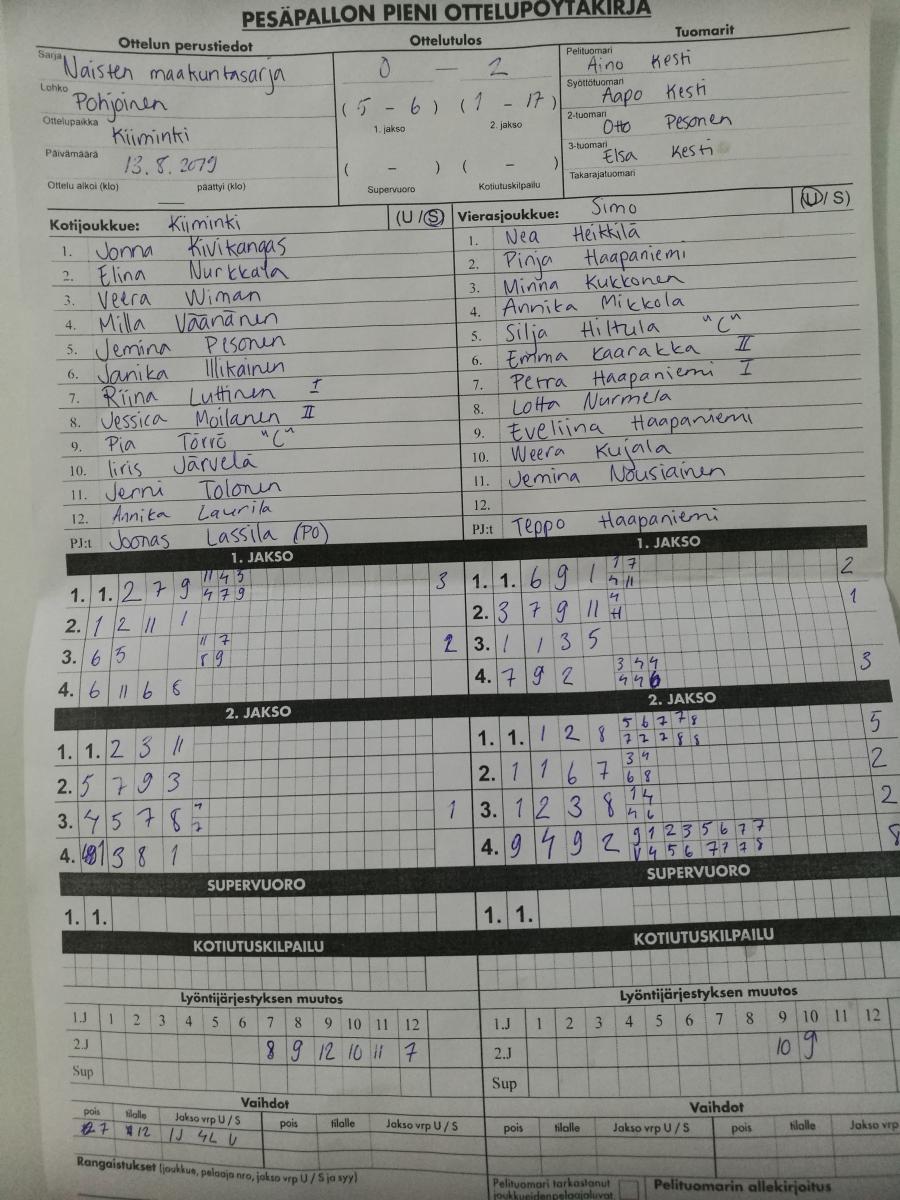 PESÄPALLON PIENI OTTELUPÖYTÄKIRJA
Ottelun perustiedot
Sarja Naisten maakuntasarja
Lohko Pohjoinen
Ottelupaikka Kiiminki
Päivämäärä 13.8.2019
Ottelu alkoi (klo) päättyi (klo)
Ottelutulos
0 — 2
(5 - 6) (1 - 17)
1. jakso 2. jakso
( - ) ( - )
Supervuoro Kotiutuskilpailu
Tuomarit
Pelituomari Aino Kesti
Syöttötuomari Aapo Kesti
2-tuomari Otto Pesonen
3-tuomari Elsa Kesti
Takarajatuomari
Kotijoukkue: Kiiminki (U / S)
1. Jonna Kivikangas
2. Elina Nurkkala
3. Veera Wiman
4. Milla Väänänen
5. Jemina Pesonen
6. Janika Illikainen
7. Riina Luttinen I
8. Jessica Moilanen II
9. Pia Törrö "C"
10. Iiris Järvelä
11. Jenni Tolonen
12. Annika Laurila
PJ:t Joonas Lassila (PO)
Vierasjoukkue: Simo (U / S)
1. Nea Heikkilä
2. Pinja Haapaniemi
3. Minna Kukkonen
4. Annika Mikkola
5. Silja Hiltula "C"
6. Emma Kaarakka II
7. Petra Haapaniemi I
8. Lotta Nurmela
9. Eveliina Haapaniemi
10. Weera Kujala
11. Jemina Nousiainen
12.
PJ:t Teppo Haapaniemi
1. JAKSO
1. 1. 2 7 9 11 4 3 3
4 7 9
2. 1 2 11 1
3. 6 5 11 7 2
8 9
4. 6 11 6 8
1. JAKSO
1. 1. 6 9 1 1 7 2
4 11
2. 3 7 9 11 4 1
11
3. 1 1 3 5
4. 7 9 2 3 4 4 3
4 4 6
2. JAKSO
1. 1. 2 3 11
2. 5 7 9 3
3. 4 5 7 8 1
4. 1 3 8 1
2. JAKSO
1. 1. 1 2 8 5 6 7 7 8 5
7 2 7 8 8
2. 1 1 6 7 3 4 2
6 8
3. 1 2 3 8 1 4 2
4 6
4. 9 4 9 2 9 1 2 3 5 6 7 7 8
1 4 5 6 7 7 7 8
SUPERVUORO
1. 1.
SUPERVUORO
1. 1.
KOTIUTUSKILPAILU
KOTIUTUSKILPAILU
Lyöntijärjestyksen muutos
1.J 1 2 3 4 5 6 7 8 9 10 11 12
2.J 8 9 12 10 11 7
Sup
Lyöntijärjestyksen muutos
1.J 1 2 3 4 5 6 7 8 9 10 11 12
2.J 10 9
Sup
Vaihdot
pois tilalle Jakso vrp U / S pois tilalle Jakso vrp U / S
7 12 1J 4L U
Vaihdot
pois tilalle Jakso vrp U / S pois tilalle Jakso vrp
Rangaistukset (joukkue, pelaaja nro, jakso vrp U / S ja syy)
Pelituomari tarkastanut
joukkueidenpelaajaluvat
Pelituomarin allekirjoitus